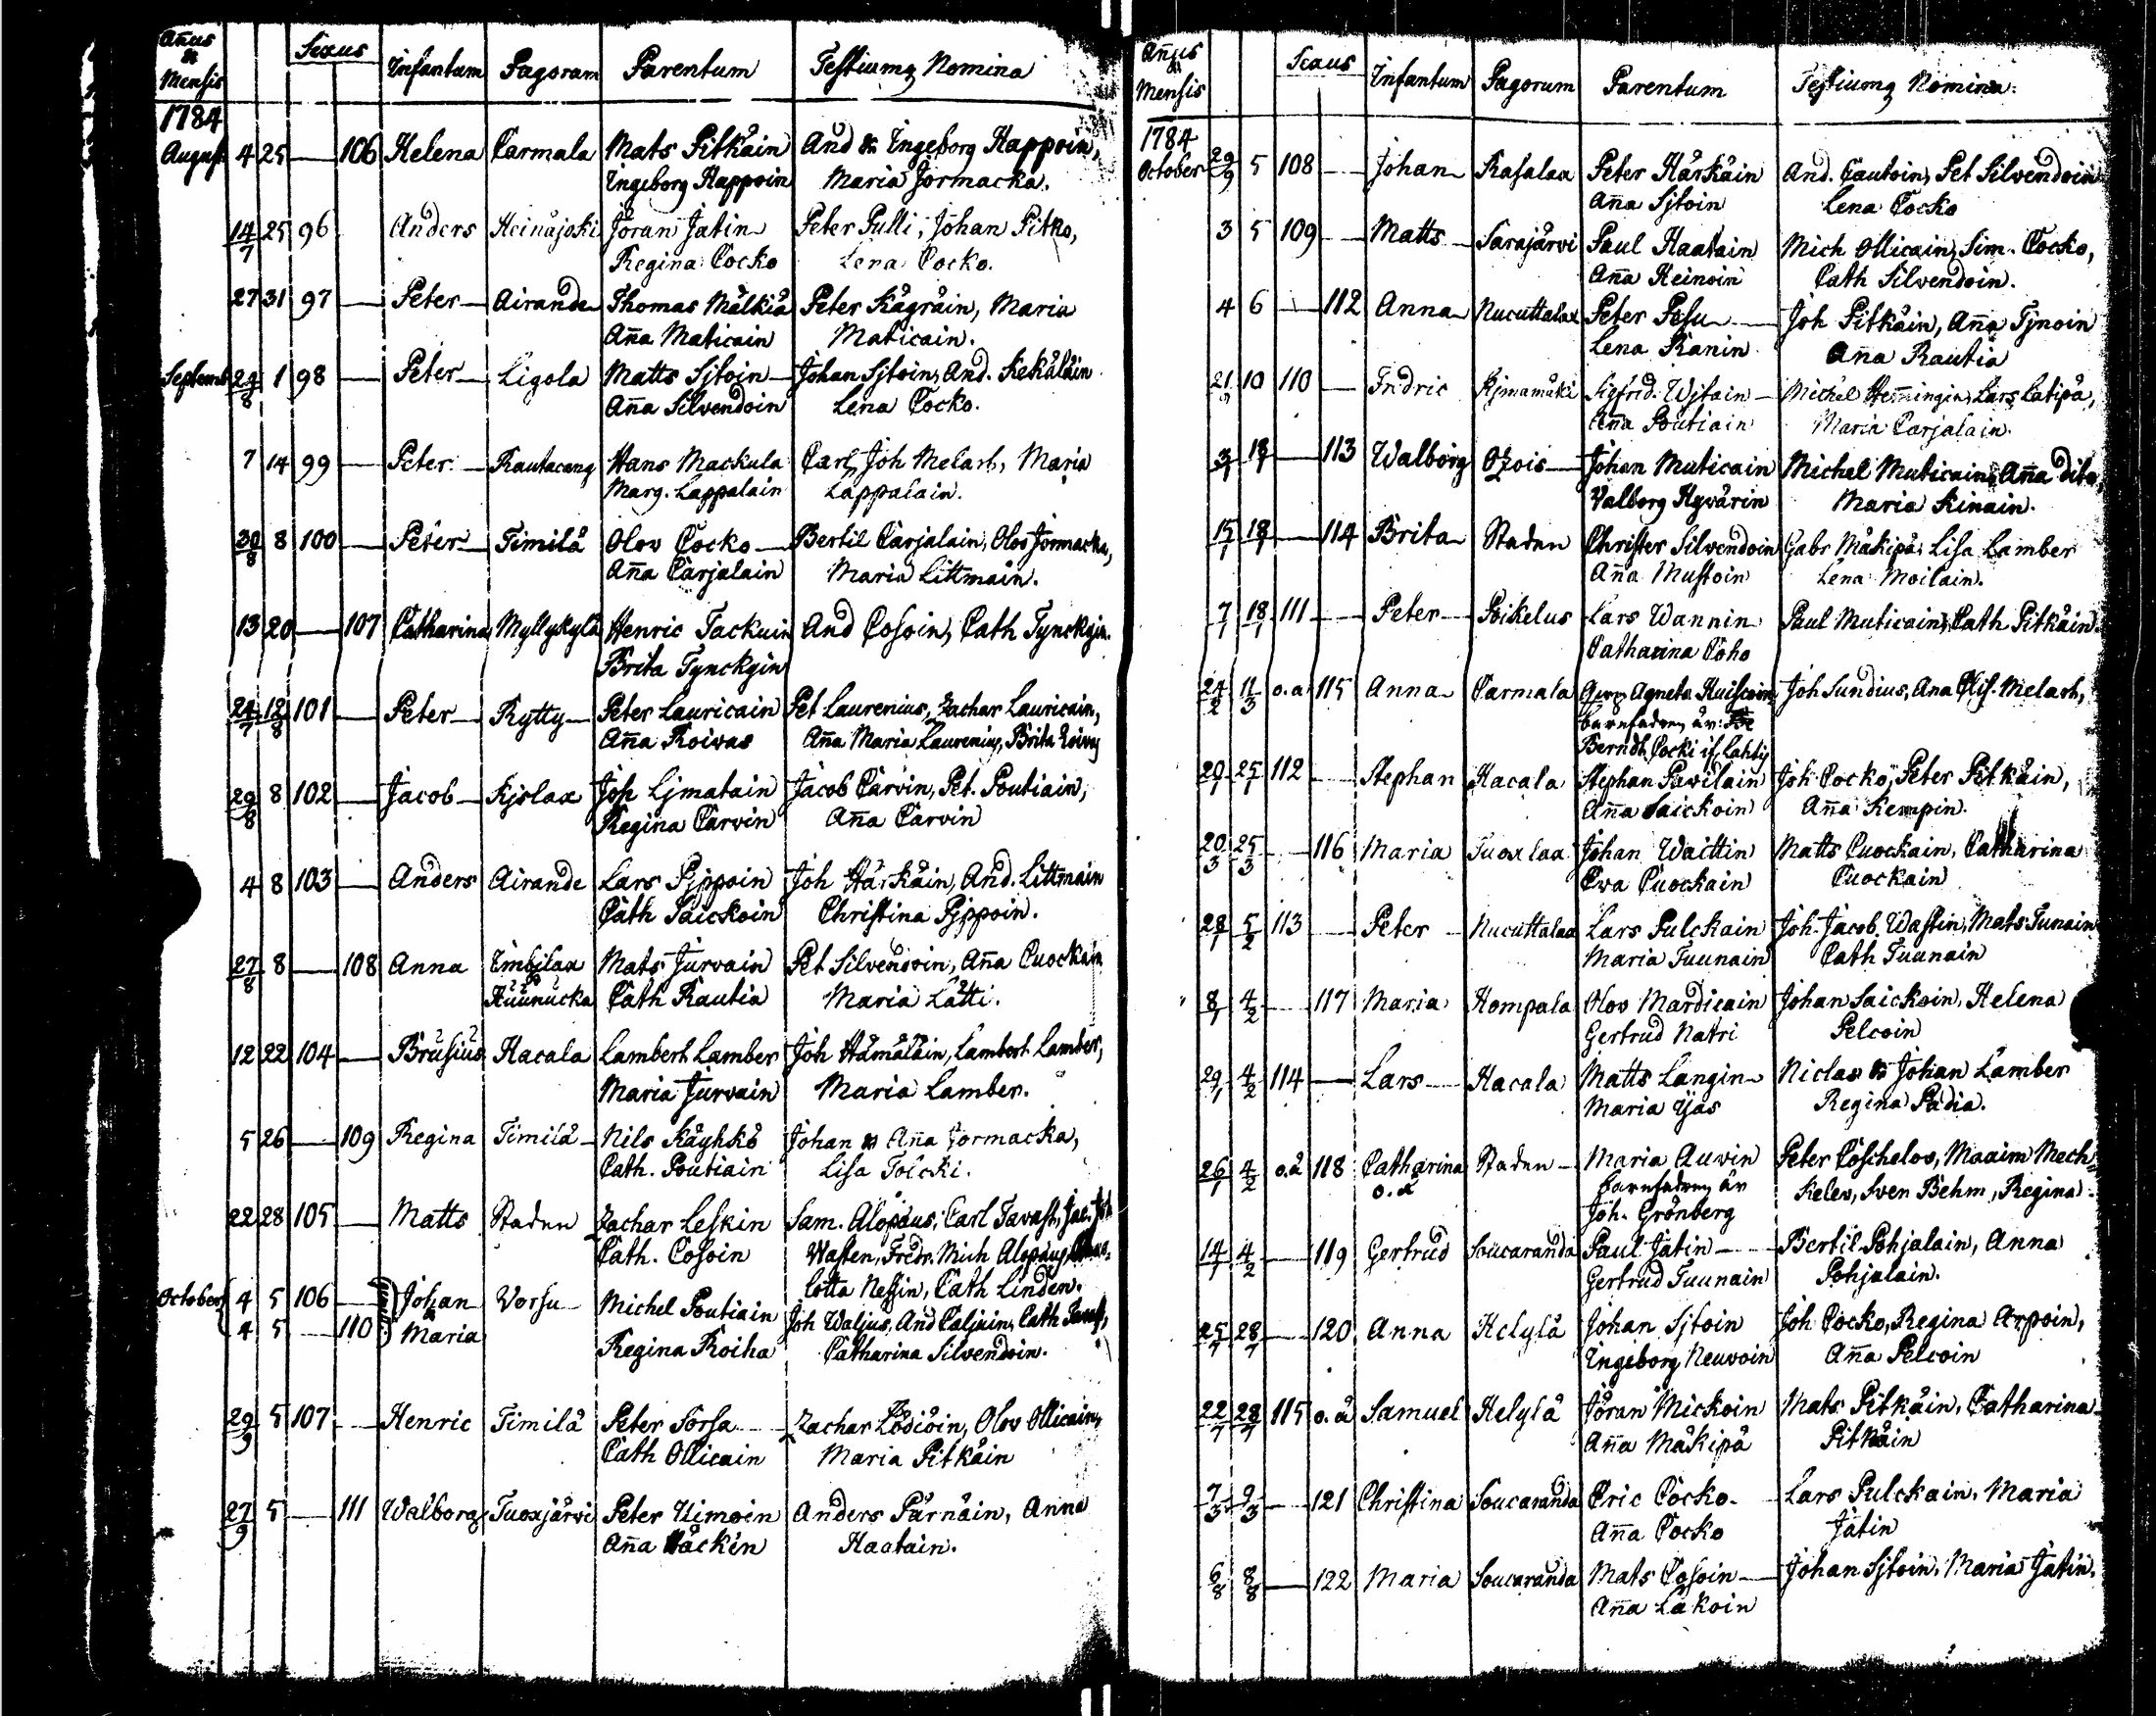 Añus & Mensis Sexus Infantum Pagorum Parentum Testiumq Nomina
1784
August 4 25 — 106 Helena Carmala Mats Pitkäin And & Ingeborg Happoin,
Ingeborg Happoin Maria Jormacka.
14/7 25 96 Anders Heinäjoki Jöran Jatin Peter Pulli, Johan Pitko,
Regina Cocko Lena Cocko.
27 31 97 — Peter Airande Thomas Mälkiä Peter Kägräin, Maria
Aña Maticain Maticain.
Septemb 29/8 1 98 — Peter Ligola Matts Sjtoin Johan Sjtoin, And. Kekäläin
Aña Silvendoin Lena Cocko.
7 14 99 — Peter Rautacang Hans Mackula Carl Joh Melart, Maria
Marg. Lappalain Lappalain.
30/8 8 100 — Peter Timilä Olov Cocko Bertil Carjalain, Olov Jormacka,
Aña Carjalain Maria Littmain.
13 20 — 107 Catharina Myllykylä Henric Tackuin And Cosoin, Cath Tynckyin.
Brita Tynckyin
24/7 12/8 101 — Peter Rytty Peter Lauricain Pet Laurenius, Zachar Lauricain,
Aña Roivas Aña Maria Laurenius, Brita Roivas
29/8 8 102 — Jacob Kjslax Joh Ljmatain Jacob Carvin, Pet. Poutiain,
Regina Carvin Aña Carvin
4 8 103 — Anders Airande Lars Pjppoin Joh Härkäin, And. Littmain
Cath Saickoin Christina Pjppoin.
27/8 8 — 108 Anna Imbilax Mats Jurvain Pet Silvendoin, Aña Cuockain
Ruunucka Cath Rautia Maria Lätti.
12 22 104 — Brusius Hacala Lambert Lamber Joh Hämäläin, Lambert Lamber,
Maria Jurvain Maria Lamber.
5 26 — 109 Regina Timilä Nils Käyhkö Johan & Aña Jormacka,
Cath. Poutiain Lisa Toicki.
22 28 105 — Matts Staden Zachar Leskin Sam. Alopæus, Carl Tavast, Jac. Joh
Cath. Cosoin Wasten, Fredr. Mich Alopæus,
lotta Nessin, Cath Linden.
October 4 5 106 — Johan Vorsu Michel Poutiain Joh Waljus, And Caljain, Cath Tavast,
4 5 — 110 & Maria Regina Roiha Catharina Silvendoin.
29/9 5 107 — Henric Timilä Peter Sorsa Zachar Lödiöin, Olov Ollicain,
Cath Ollicain Maria Pitkäin
27/9 5 — 111 Walborg Tuoxjärvi Peter Uimoin Anders Pärnäin, Anna
Aña Häckin Haatain.
Añus & Mensis Sexus Infantum Pagorum Parentum Testiumq Nomina
1784
October 29/9 5 108 — Johan Rasalax Peter Härkäin And. Cautoin, Pet Silvendoin
Aña Sjtoin Lena Cocko
3 5 109 — Matts Sarajärvi Paul Haatain Mich Ollicain, Sim. Cocko,
Aña Heinoin Cath Silvendoin.
4 6 — 112 Anna Nucuttalax Peter Pesu Joh Pitkäin, Aña Tjnoin
Lena Ranin Aña Rautia
21/9 10 110 — Fridric Kjmamäki Sigfrid Wjtain Michel Heñingin, Lars Latipä,
Aña Poutiain Maria Carjalain.
3/1 18/1 — 113 Walborg Otzois Johan Muticain Michel Muticain, Aña dito,
Valborg Hyvärin Maria Kinain.
15/1 18/1 — 114 Brita Staden Christer Silvendoin Gabr Mäkipä, Lisa Lamber
Aña Mustoin Lena Moilain.
7/1 18/1 111 — Peter Poikelus Lars Wannin Paul Muticain, Cath Pitkäin.
Catharina Coho
24/2 11/3 o.ä 115 Anna Carmala Agneta Huiscoin Joh Sundius, Ana Elis. Melart,
barnfadren är:
Berndt Cocki if. Lahti
20/1 25/1 112 — Stephan Hacala Stephan Pawilain Joh Cocko, Peter Pitkäin,
Aña Saickoin Aña Kempin.
20/3 25/3 — 116 Maria Tuoxlax Johan Waittin Matts Cuockain, Catharina
Eva Cuockain Cuockain
28/1 5/2 113 — Peter Nucuttalax Lars Pulckain Joh. Jacob Wastin, Mats Tunain
Maria Tuunain Cath Tuunain
8/1 4/2 — 117 Maria Hompala Olov Mardicain Johan Saickoin, Helena
Gertrud Natri Pelcoin
29/1 4/2 114 — Lars Hacala Matts Langin Niclas & Johan Lamber
Maria Yjas Regina Padia.
26/1 4/2 o.ä 118 Catharina Staden Maria Auvin Peter Coschelov, Maxim Mech=
o.ä barnfadren är kelev, Sven Behm, Regina
Joh. Grönberg
14/1 4/2 — 119 Gertrud Soucaranda Paul Jatin Bertil Pohjalain, Anna
Gertrud Tuunain Pohjalain.
25/7 28/7 — 120 Anna Helylä Johan Sjtoin Joh Cocko, Regina Arpoin,
Ingeborg Neuvoin Aña Pelcoin
22/7 28/7 115 o.ä Samuel Helylä Jöran Mickoin Mats Pitkäin, Catharina
Aña Mäkipä Pitkäin
7/3 9/3 — 121 Christina Soucaranda Eric Cocko Lars Pulckain, Maria
Aña Cocko Jatin
6/8 8/8 — 122 Maria Soucaranda Mats Cosoin Johan Sjtoin, Maria Jatin.
Aña Läkoin